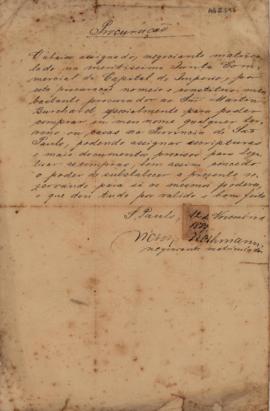 Procuração
O abaixo assignado, negociante matricu-
lado na meritissima Junta Com-
mercial da Capital do Imperio, por
esta procuração nomeio e constituo meu
bastante procurador ao Snr Martin
Burchard especialmente para poder
comprar em meu nome qualquer ter-
reno ou casas na Provincia de São
Paulo, podendo assignar escripturas
e mais documentos precisos para
as compras, bem assim concedo
o poder de substabelecer a presente re-
zervando para si os mesmos poderes,
o que dou tudo por valido e bom feito
S. Paulo,
Victor Nothmann,
negociante matriculado